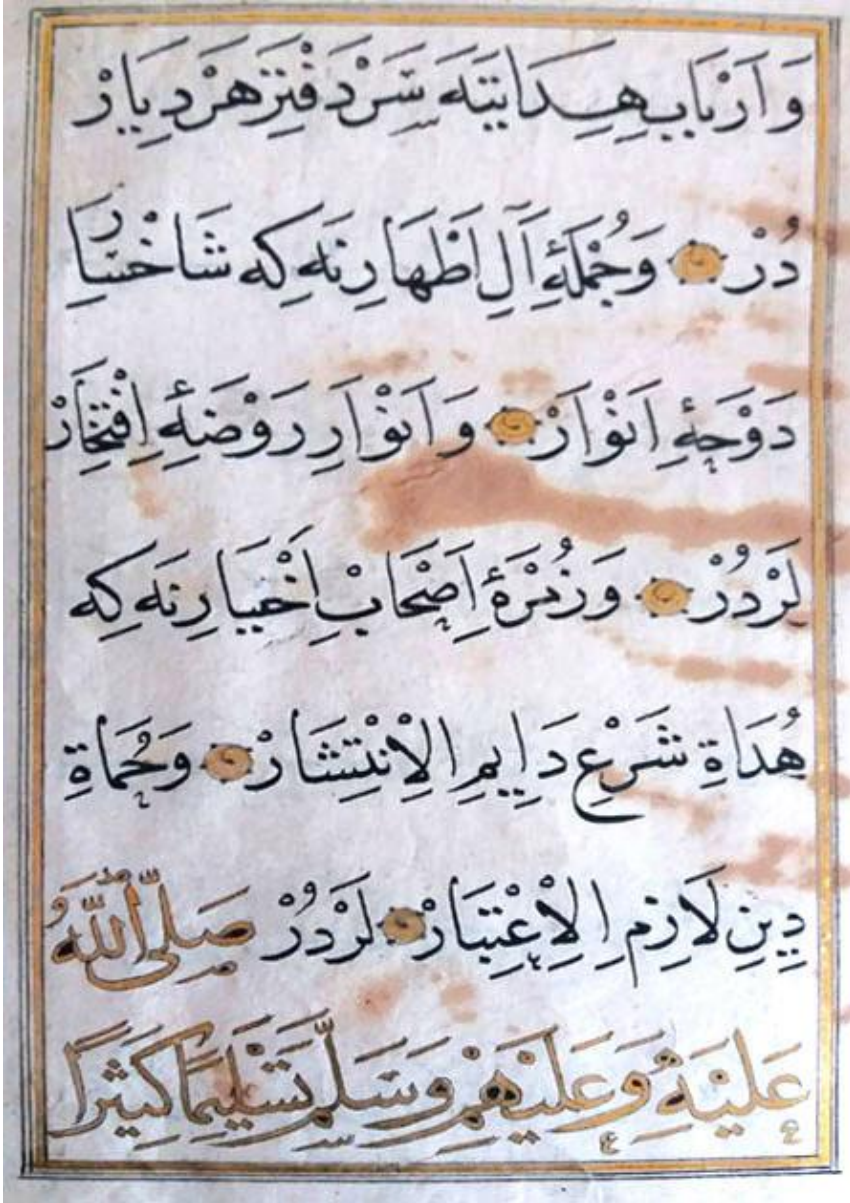 وَاَرْبَابِ هِدَايَتَه سَرْدَفْتَرِ هَرْدِيَارْ
دُرْ وَجُمْلَهِٔ آلِ اَطْهَارِنَه كِه شَاخْسَارِ
دَوْحَهِٔ اَنْوَارْ وَاَنْوَارِ رَوْضَهِٔ اِفْتِخَارْ
لَرْدُرْ وَزُمْرَهٔ اَصْحَابِ اَخْيَارِنَه كِه
هُدَاةِ شَرْعِ دَايِمِ الْاِنْتِشَارْ وَحُمَاةِ
دِينِ لَازِمِ الْاِعْتِبَارْ لَرْدُرْ صَلَّى اللّٰهُ
عَلَيْهِ وَعَلَيْهِمْ وَسَلَّمَ تَسْلِيمًا كَثِيرًا